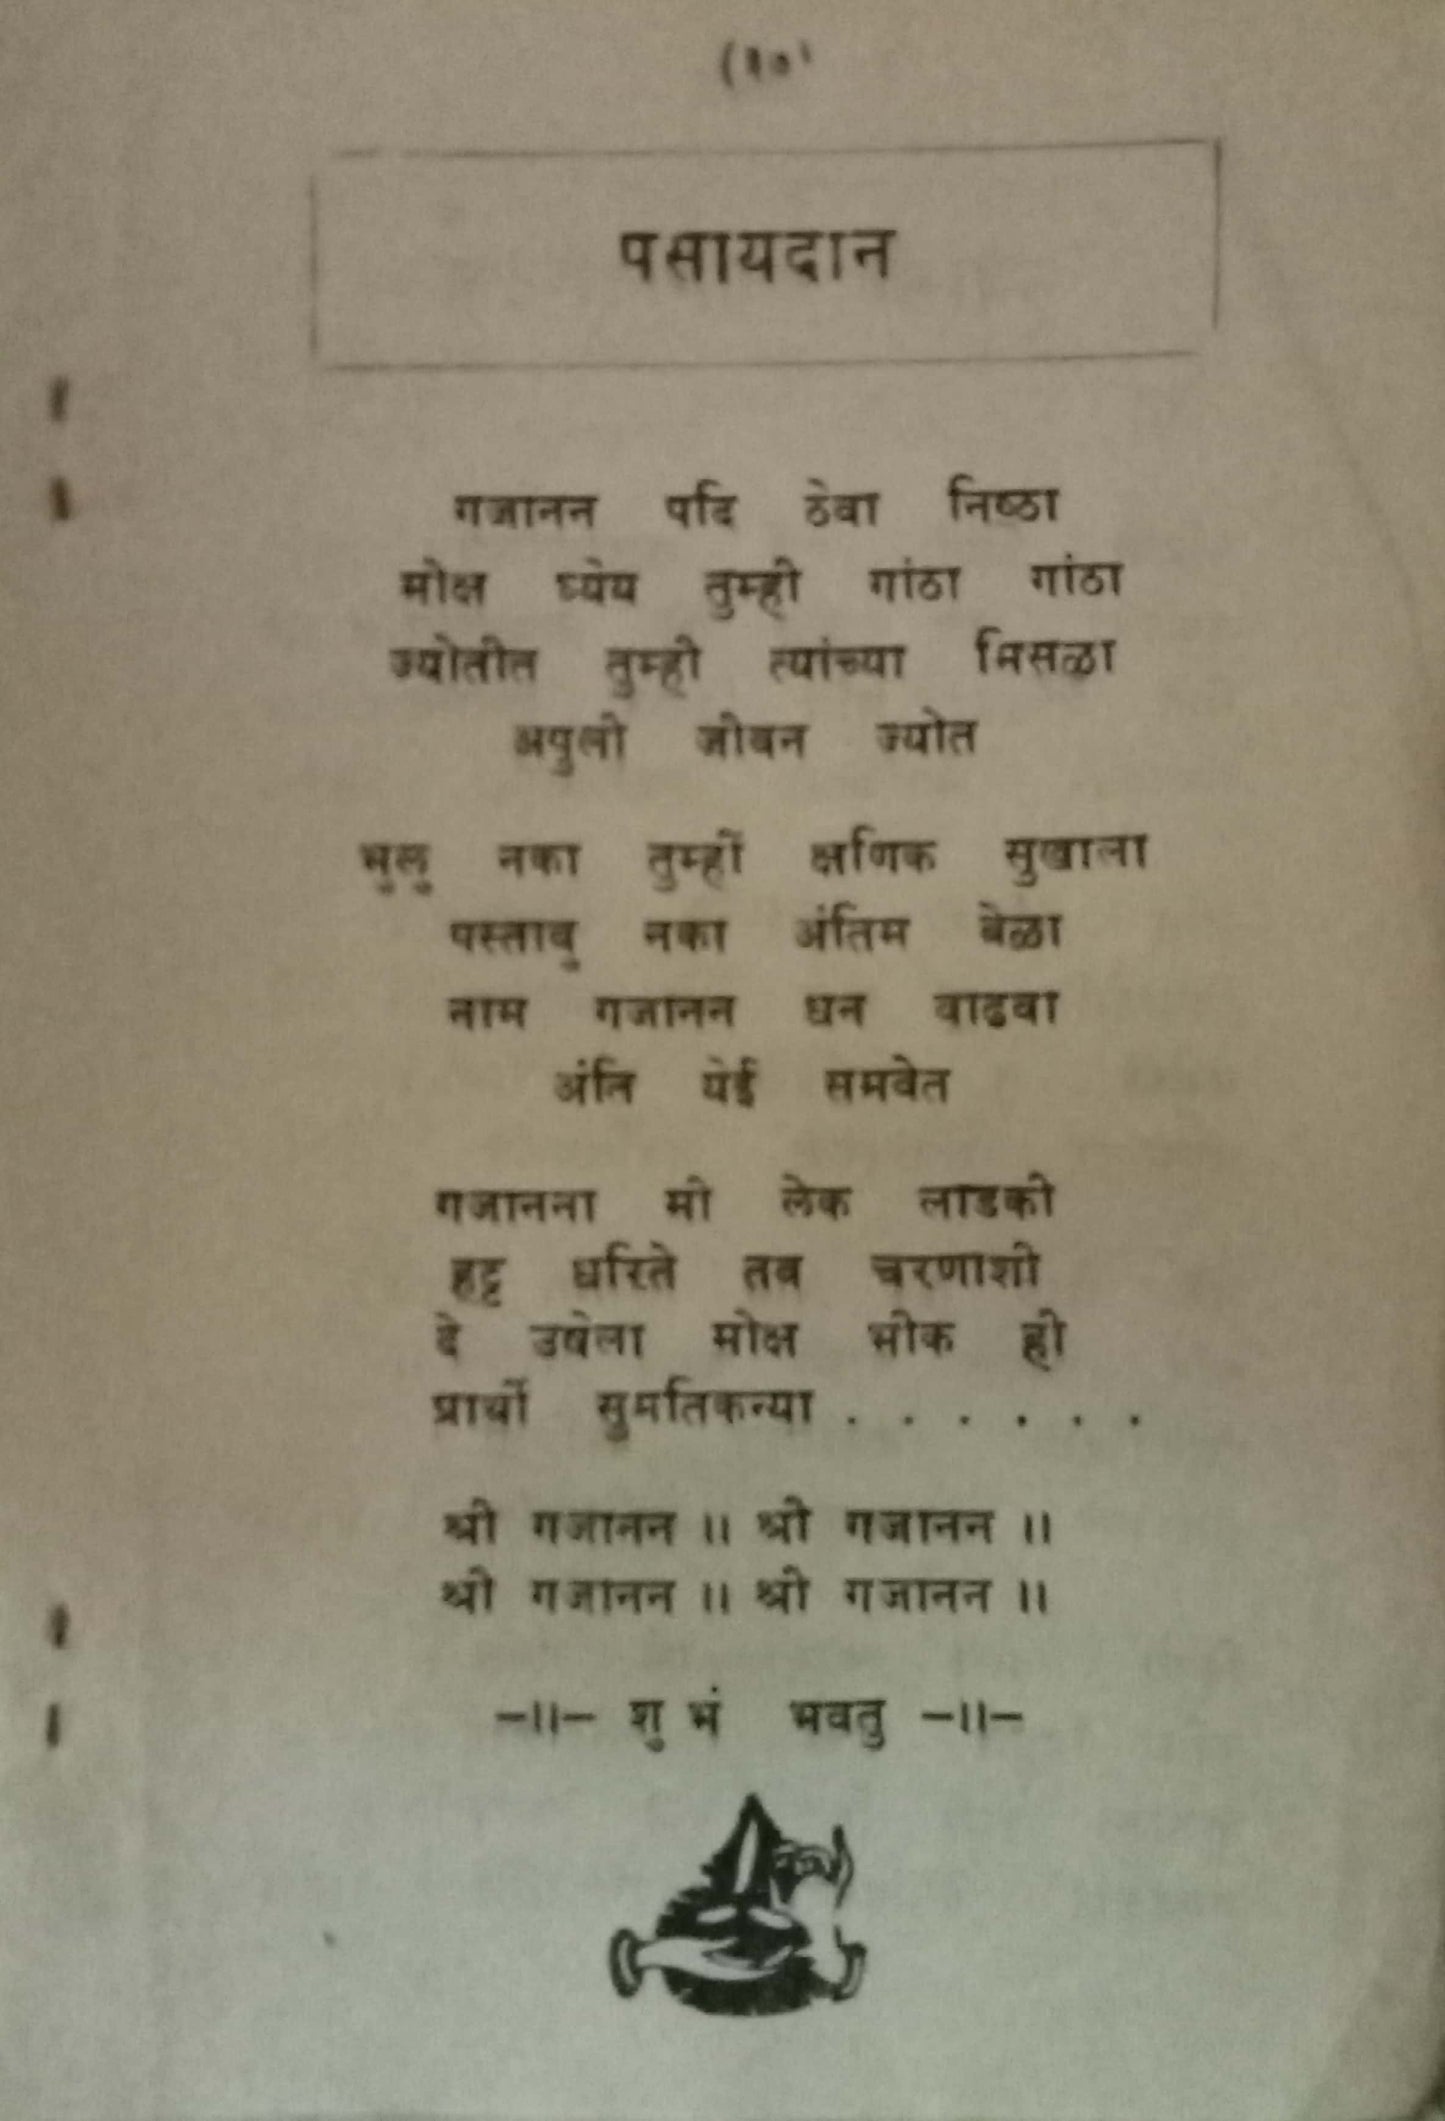 पसायदान
गजानन पदि ठेवा निष्ठा
मोक्ष ध्येय तुम्ही गांठा गांठा
ज्योतीत तुम्ही त्यांच्या मिसळा
अपुली जीवन ज्योत
भुलु नका तुम्हीं क्षणिक सुखाला
पस्तावु नका अंतिम वेळा
नाम गजानन धन वाढवा
अंति येई समवेत
गजानना मी लेक लाडकी
हट्ट धरिते तव चरणाशी
दे उषेला मोक्ष भीक ही
प्रार्थी सुमतिकन्या . . . . . .
श्री गजानन ।। श्री गजानन ।।
श्री गजानन ।। श्री गजानन ।।
-।।- शुभं भवतु -।।-